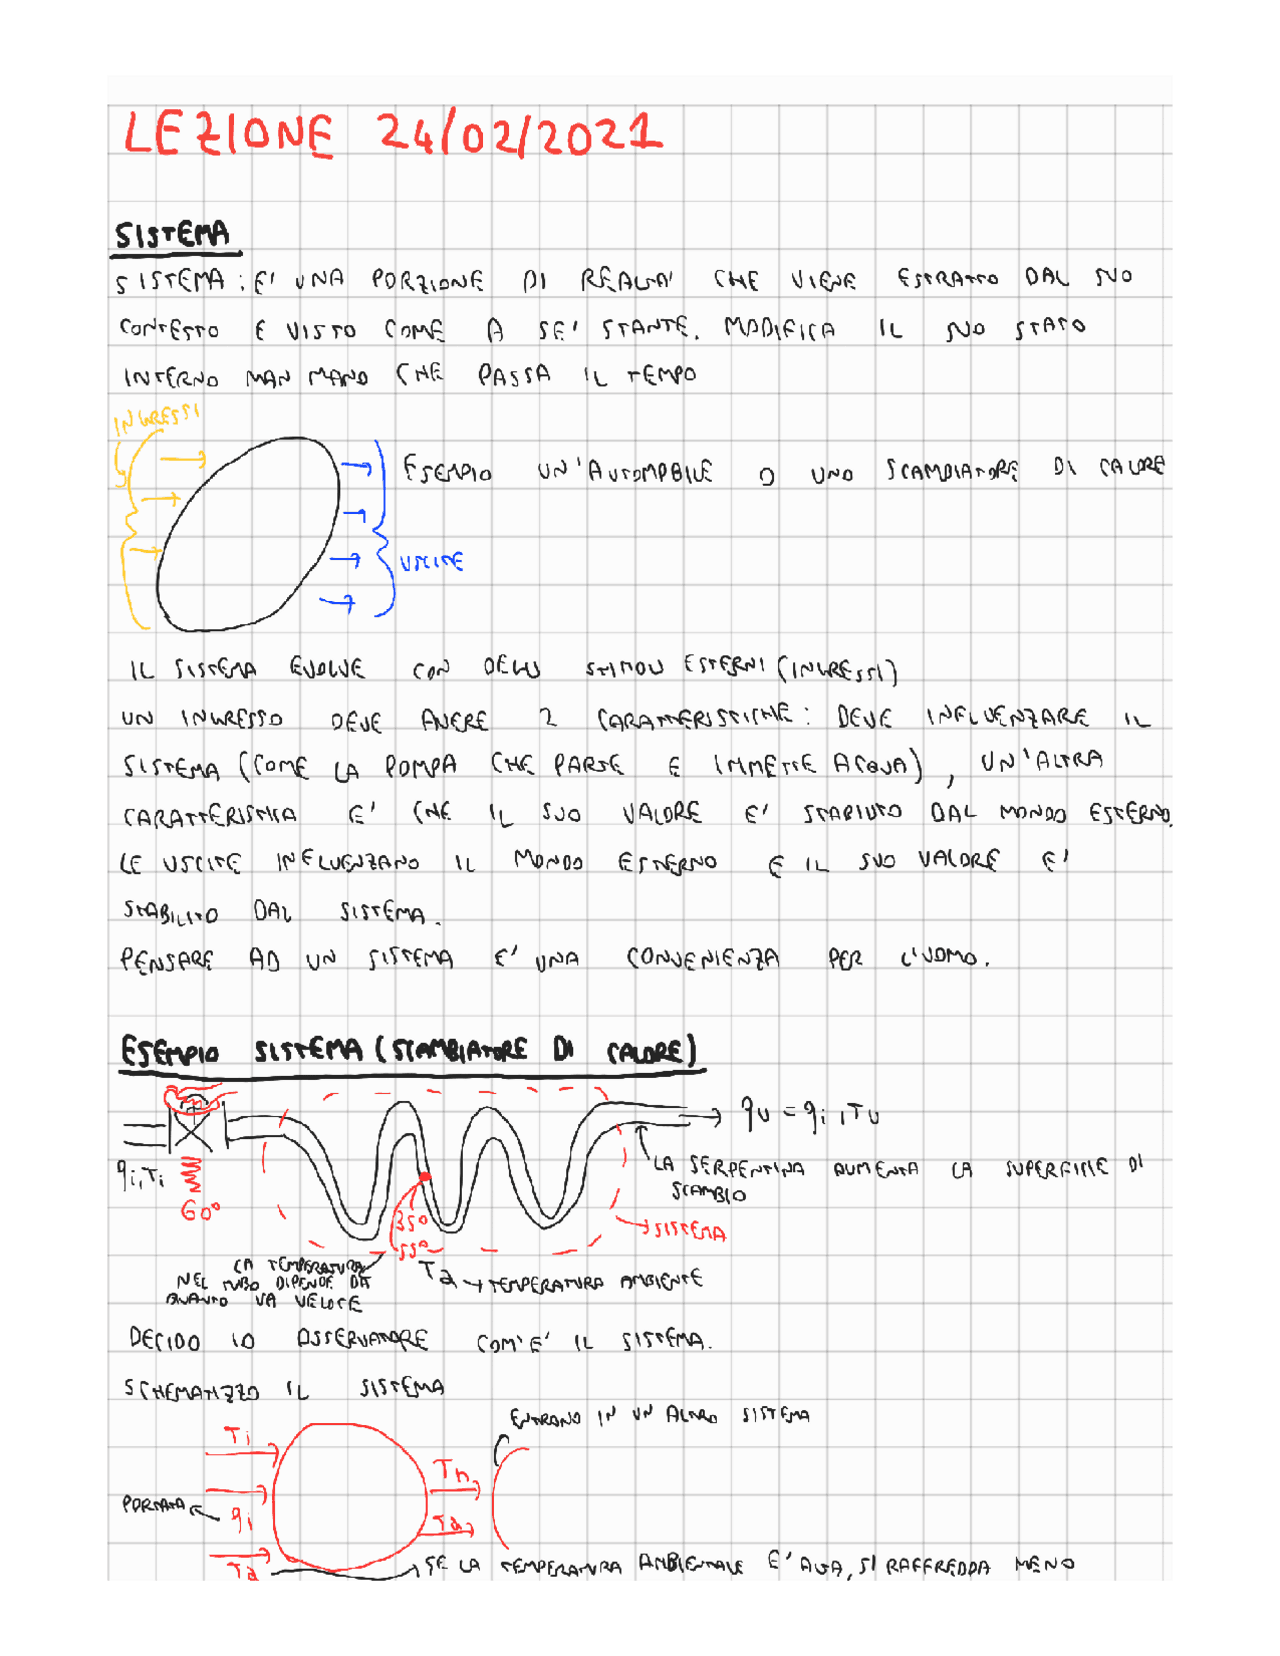 LEZIONE 24/02/2021
SISTEMA
SISTEMA: E' UNA PORZIONE DI REALTA' CHE VIENE ESTRATTO DAL SUO
CONTESTO E VISTO COME A SE' STANTE. MODIFICA IL SUO STATO
INTERNO MAN MANO CHE PASSA IL TEMPO
INGRESSI
ESEMPIO UN'AUTOMOBILE O UNO SCAMBIATORE DI CALORE
USCITE
IL SISTEMA EVOLVE CON DEGLI STIMOLI ESTERNI (INGRESSI)
UN INGRESSO DEVE AVERE 2 CARATTERISTICHE: DEVE INFLUENZARE IL
SISTEMA (COME LA POMPA CHE PARTE E IMMETTE ACQUA), UN'ALTRA
CARATTERISTICA E' CHE IL SUO VALORE E' STABILITO DAL MONDO ESTERNO.
LE USCITE INFLUENZANO IL MONDO ESTERNO E IL SUO VALORE E'
STABILITO DAL SISTEMA.
PENSARE AD UN SISTEMA E' UNA CONVENIENZA PER L'UOMO.
ESEMPIO SISTEMA (SCAMBIATORE DI CALORE)
qu = qi, Tu
qi, Ti
60°
LA SERPENTINA AUMENTA LA SUPERFICIE DI
SCAMBIO
35°
55°
SISTEMA
LA TEMPERATURA
NEL TUBO DIPENDE DA
QUANTO VA VELOCE
Ta → TEMPERATURA AMBIENTE
DECIDO IO OSSERVATORE COM'E' IL SISTEMA.
SCHEMATIZZO IL SISTEMA
ENTRANO IN UN ALTRO SISTEMA
Ti
PORTATA
qi
Ta
Ta
SE LA TEMPERATURA AMBIENTALE E' ALTA, SI RAFFREDDA MENO